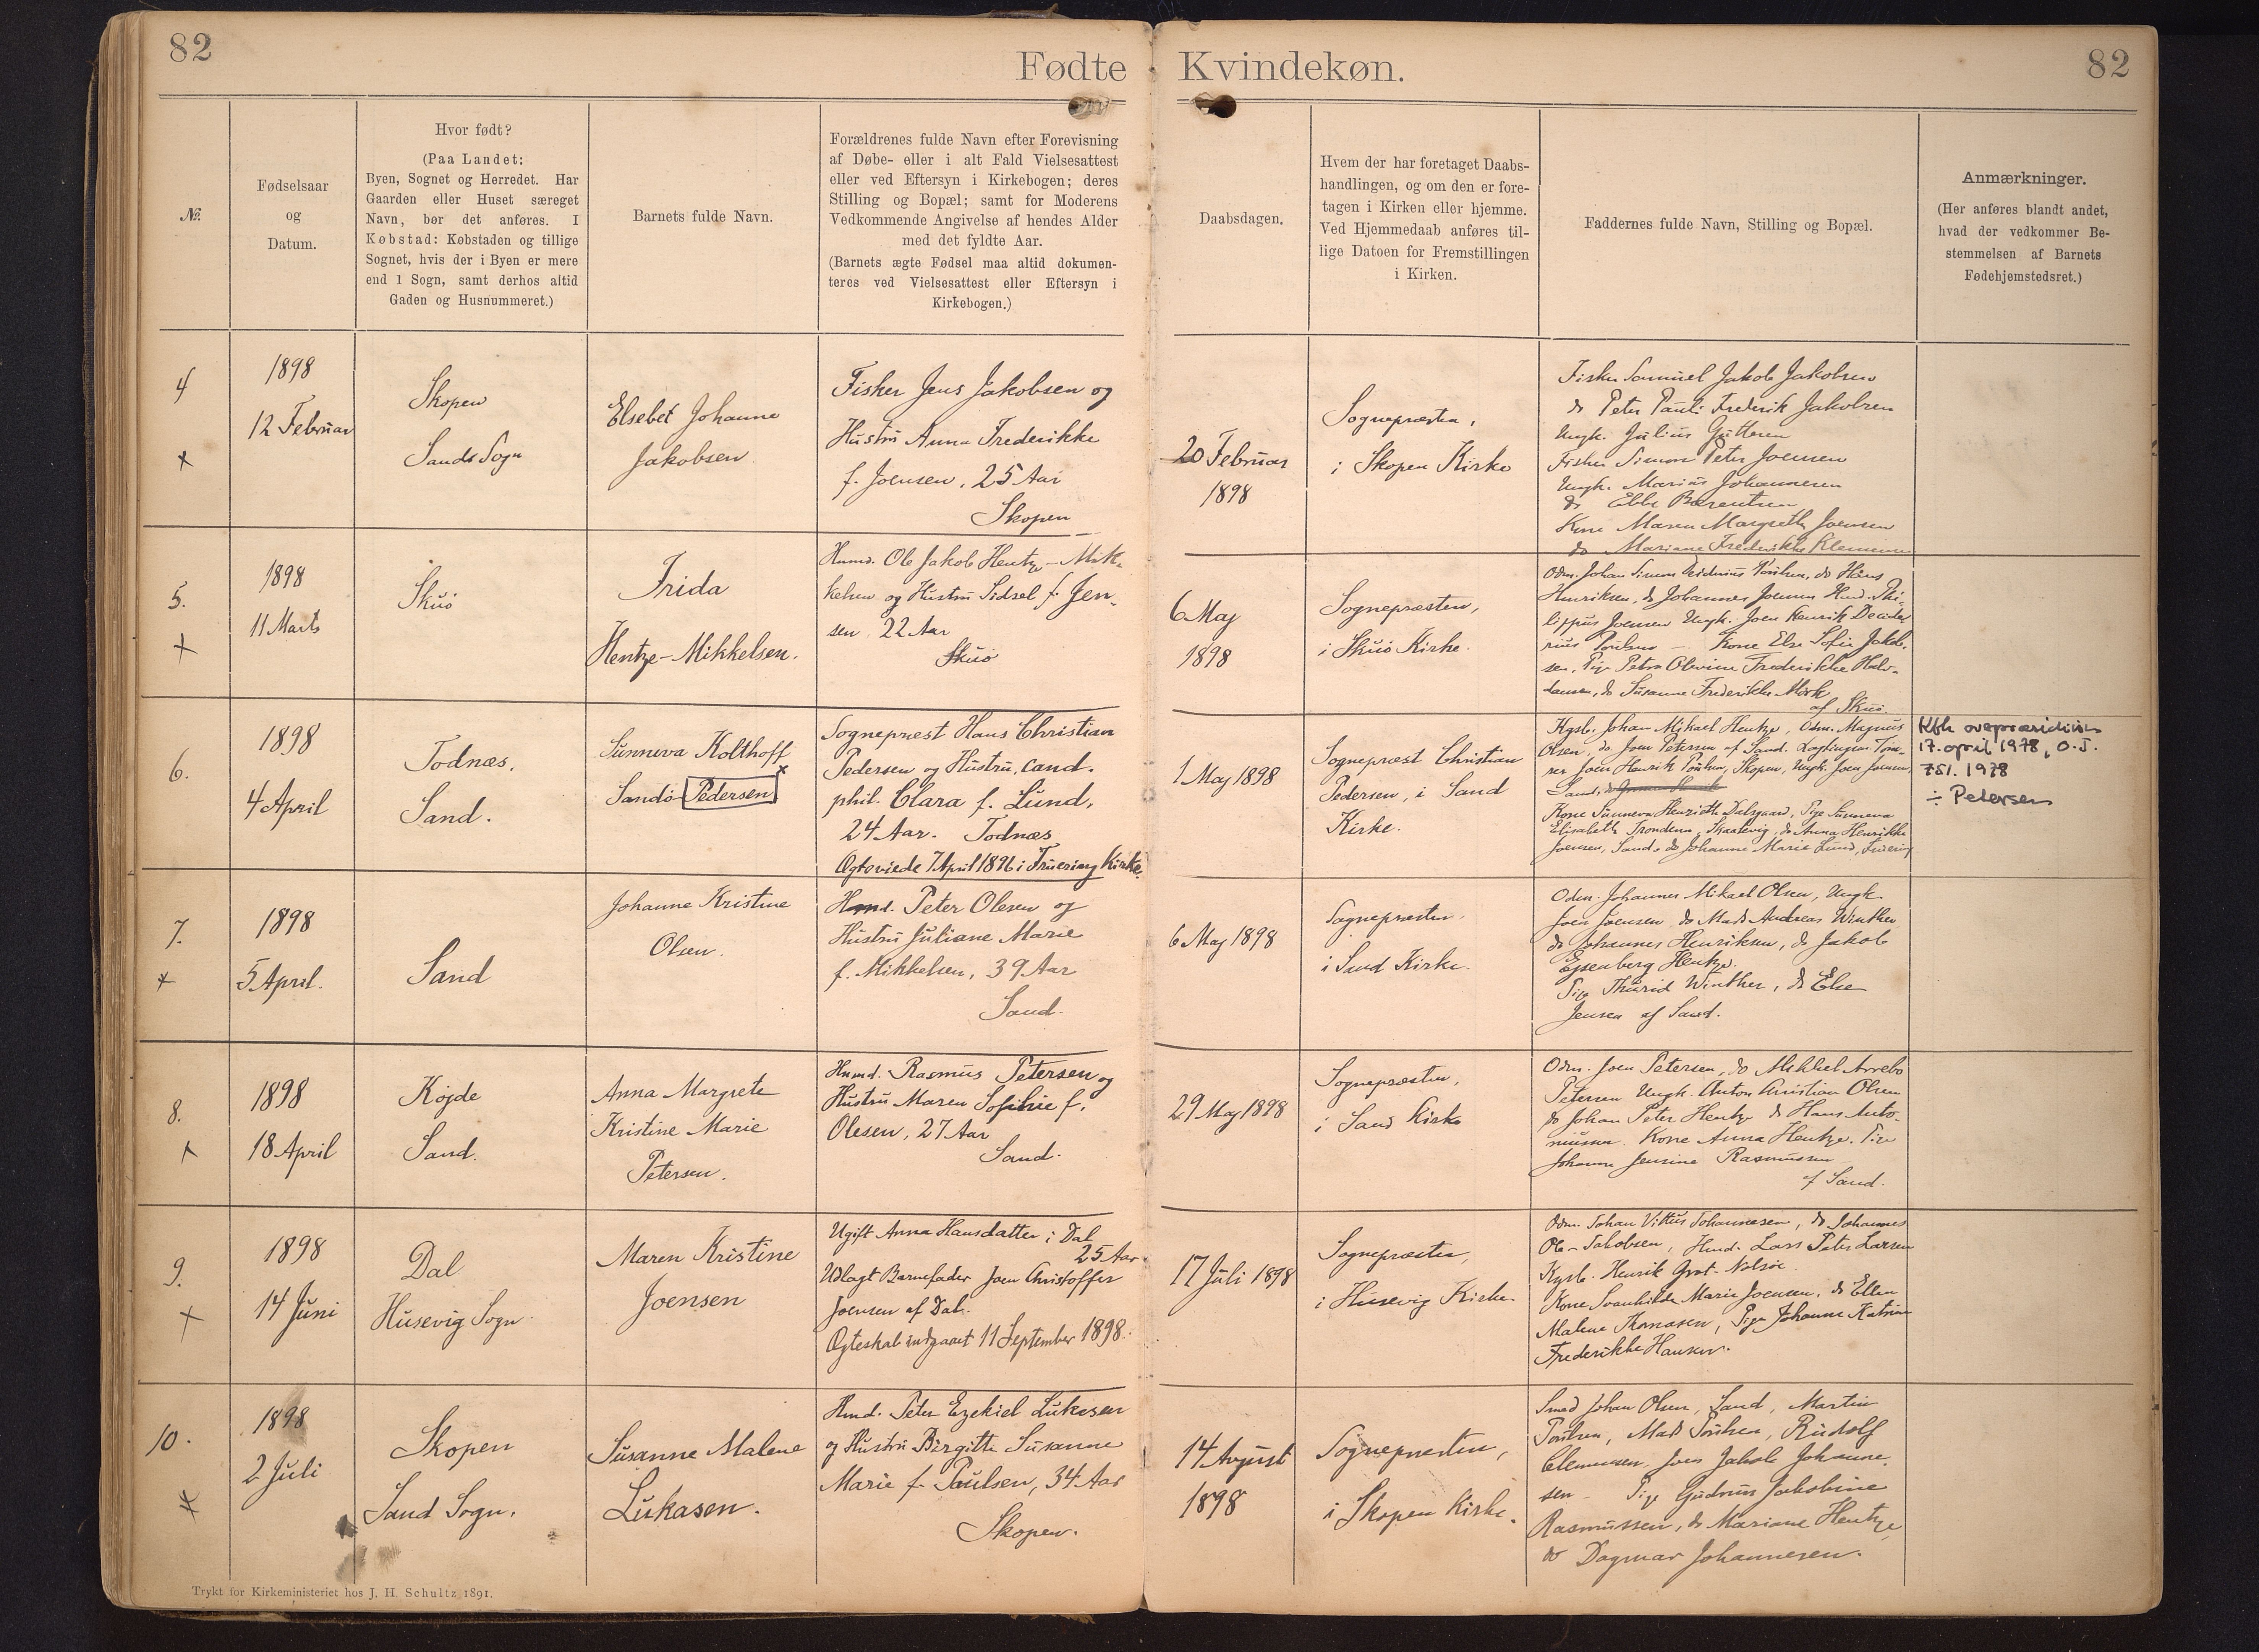 82
Fødte
Kvindekøn.
82
№.
Fødselsaar
og
Datum.
Hvor født?
(Paa Landet:
Byen, Sognet og Herredet. Har
Gaarden eller Huset særeget
Navn, bør det anføres. I
Købstad: Købstaden og tillige
Sognet, hvis der i Byen er mere
end 1 Sogn, samt derhos altid
Gaden og Husnummeret.)
Barnets fulde Navn.
Forældrenes fulde Navn efter Forevisning
af Døbe- eller i alt Fald Vielsesattest
eller ved Eftersyn i Kirkebogen; deres
Stilling og Bopæl; samt for Moderens
Vedkommende Angivelse af hendes Alder
med det fyldte Aar.
(Barnets ægte Fødsel maa altid dokumen-
teres ved Vielsesattest eller Eftersyn i
Kirkebogen.)
Daabsdagen.
Hvem der har foretaget Daabs-
handlingen, og om den er fore-
tagen i Kirken eller hjemme.
Ved Hjemmedaab anføres til-
lige Datoen for Fremstillingen
i Kirken.
Faddernes fulde Navn, Stilling og Bopæl.
Anmærkninger.
(Her anføres blandt andet,
hvad der vedkommer Be-
stemmelsen af Barnets
Fødehjemstedsret.)
4
1898
12 Februar
Skopen
Sands Sogn
Elsebet Johanne
Jakobsen
Fisker Jens Jakobsen og
Hustru Anna Frederikke
f. Joensen, 25 Aar
Skopen
20 Februar
1898
Sognepræsten,
i Skopen Kirke
Fisker Samuel Jakob Jakobsen
do Peter Pauli Frederik Jakobsen
Ungk. Julius Guttesen
Fisker Simon Peter Joensen
Ungk. Marius Johannesen
do Ebbe Berentsen
Kone Maren Margreth Joensen
do Mariane Frederikke Klemensen
5.
1898
11 Marts
Skuø
Frida
Hentze-Mikkelsen.
Hmd. Ole Jakob Hentze-Mik-
kelsen og Hustru Sidsel f. Jen-
sen 22 Aar
Skuø
6 Maj
1898
Sognepræsten,
i Skuø Kirke.
Odm. Johan Simon Poulsen, do Hans
Henriksen, do Johannes Joensen Hmd. Phi-
lippus Joensen Ungk. Joen Henrik
Poulsen - Kone Else Sofie Jakob-
sen, Pige Petra Olevine Frederikke Halv-
dansen, do Susanne Frederikke Mørk
af Skuø.
6.
1898
4 April
Todnæs,
Sand.
Sunneva Kolthoff
Sandø-Pedersen
Sognepræst Hans Christian
Pedersen og Hustru, cand.
phil. Clara f. Lund,
24 Aar. Todnæs
Ægteviede 7 April 1896 i Fruering Kirke.
1 Maj 1898
Sognepræst Christian
Pedersen, i Sand
Kirke.
Kgsb. Johan Mikael Hentze, Odm. Magnus
Olsen, do Joen Petersen af Sand. Lagtingsm. Tøm-
rer Joen Henrik Poulsen, Skopen, Ungk. Joen Joensen,
Sand,
Kone Sunneva Henriette Dalsgaard, Pige Sunneva
Elisabeth Trondesen, Skaalevig, do Anna Henrikke
Joensen, Sand, do Johanne Marie Lund, Fruering
Kbh overpræsidium
17. april 1978, O.J.
751. 1978
÷ Petersen
7.
1898
5 April.
Sand
Johanne Kristine
Olsen.
Hmd. Peter Olesen og
Hustru Juliane Marie
f. Mikkelsen, 39 Aar
Sand.
6 Maj 1898
Sognepræsten,
i Sand Kirke.
Odm. Johannes Mikael Olsen, Ungk.
Joen Joensen do Mads Andreas Winther
do Johannes Henriksen, do Jakob
Ejsenberg Hentze.
Pige Thurid Winther, do Else
Jensen af Sand.
8.
1898
18 April
Køjde
Sand.
Anna Margrete
Kristine Marie
Petersen.
Hmd. Rasmus Petersen og
Hustru Maren Sophie f.
Olesen, 27 Aar
Sand.
29 Maj 1898
Sognepræsten,
i Sand Kirke
Odm. Joen Petersen, do Mikkel Arrebo
Petersen Ungk. Anton Kristian Olsen
do Johan Peter Hentze do Hans Anto-
niussen. Kone Anna Hentze. Pige
Johanne Jensine Rasmussen
af Sand.
9.
1898
14 Juni
Dal
Husevig Sogn
Maren Kristine
Joensen
Ugift Anna Hansdatter i Dal
25 Aar.
Udlagt Barnefader Joen Christoffer
Joensen af Dal.
Ægteskab indgaaet 11 September 1898.
17 Juli 1898
Sognepræsten,
i Husevig Kirke.
Odm. Johan Vittus Johannesen, do Johannes
Ole-Jakobsen, Hmd. Lars Peter Larsen
Kgsb. Henrik Grot-Nolsøe.
Kone Svanhilde Marie Joensen, do Ellen
Malene Thomasen, Pige Johanne Katrine
Frederikke Hansen.
10.
1898
2 Juli
Skopen
Sand Sogn.
Susanne Malene
Lukasen.
Hmd. Peter Ezekiel Lukasen
og Hustru Birgitte Susanne
Marie f. Paulsen, 34 Aar
Skopen.
14 Avgust
1898
Sognepræsten,
i Skopen Kirke.
Smed Johan Olsen, Sand, Martin
Poulsen, Mads Poulsen, Rudolf
Clemensen, Joen Jakob Johanne-
sen - Pige Gudrun Jakobine
Rasmussen, do Mariane Hentze,
do Dagmar Johannesen.
Trykt for Kirkeministeriet hos J. H. Schultz 1891.